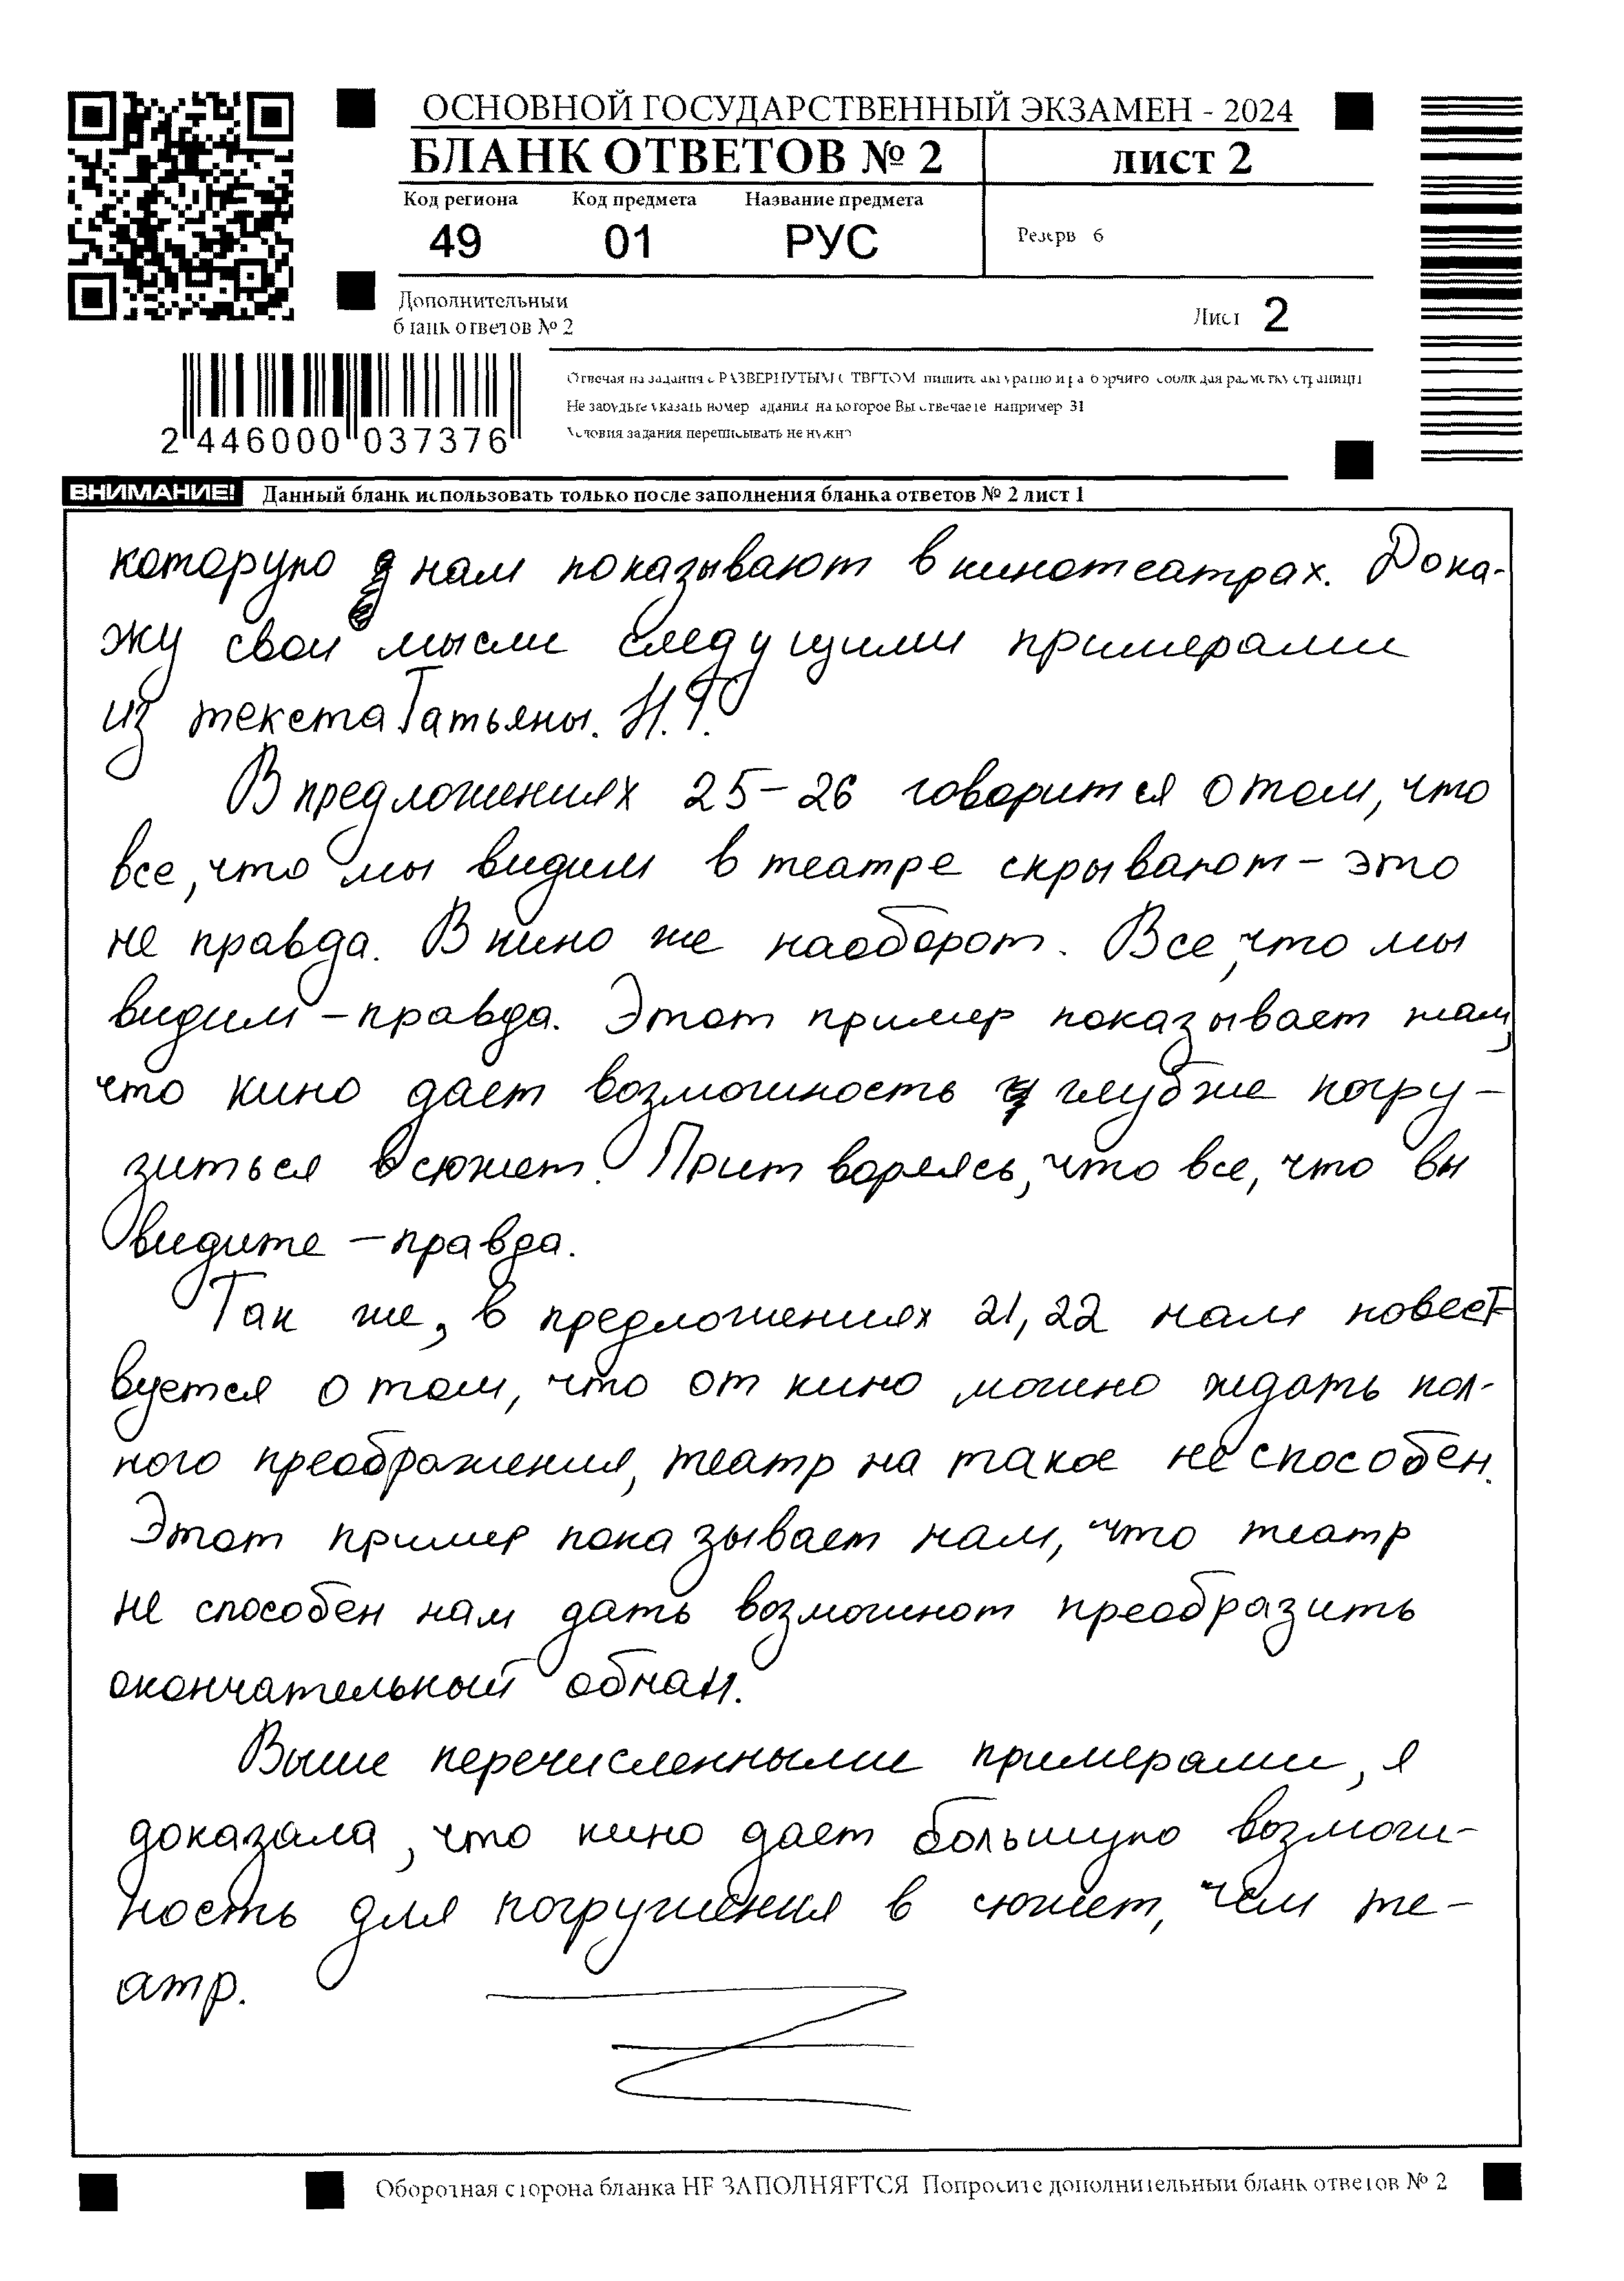 ОСНОВНОЙ ГОСУДАРСТВЕННЫЙ ЭКЗАМЕН - 2024
БЛАНК ОТВЕТОВ № 2
ЛИСТ 2
Код региона Код предмета Название предмета
49 01 РУС
Резерв 6
Дополнительный
бланк ответов № 2
Лист 2
2 446000 037376
Отвечая на задания с РАЗВЕРНУТЫМ ОТВЕТОМ пишите аккуратно и разборчиво соблюдая разметку страницы
Не забудьте указать номер задания на которое Вы отвечаете например 31
Условия задания переписывать не нужно
ВНИМАНИЕ! Данный бланк использовать только после заполнения бланка ответов № 2 лист 1
которую нам показывают в кинотеатрах. Дока-
жу свои мысли следущими примерами
из текста Татьяны. Н.Т.
В предложениях 25-26 говорится о том, что
все, что мы видим в театре скрывают - это
не правда. В кино же наоборот. Все, что мы
видим - правда. Этот пример показывает нам,
что кино дает возможность глубже погру-
зиться в сюжет. Притворяясь, что все, что вы
видите - правда.
Так же, в предложениях 21, 22 нам повест
вуется о том, что от кино можно ждать пол-
ного преображения, театр на такое не способен.
Этот пример показывает нам, что театр
не способен нам дать возможнот преобразить
окончательный обман.
Выше перечисленными примерами, я
доказала, что кино дает большую возмож-
ность для погружения в сюжет, чем те-
атр.
Оборотная сторона бланка НЕ ЗАПОЛНЯЕТСЯ Попросите дополнительный бланк ответов № 2